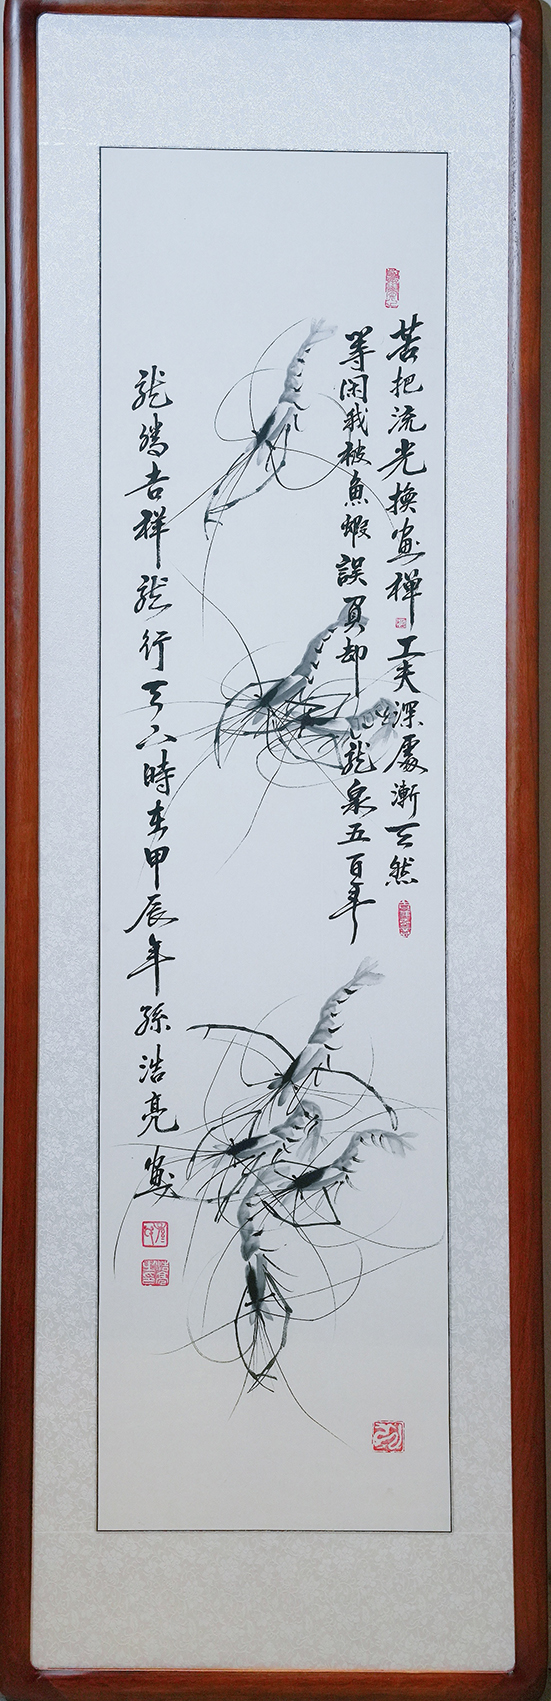 苦把流光換畫禅工夫深處漸天然
等闲我被魚蝦誤負却龍泉五百年
龍騰吉祥龍行天下時在甲辰年孫浩亮畫